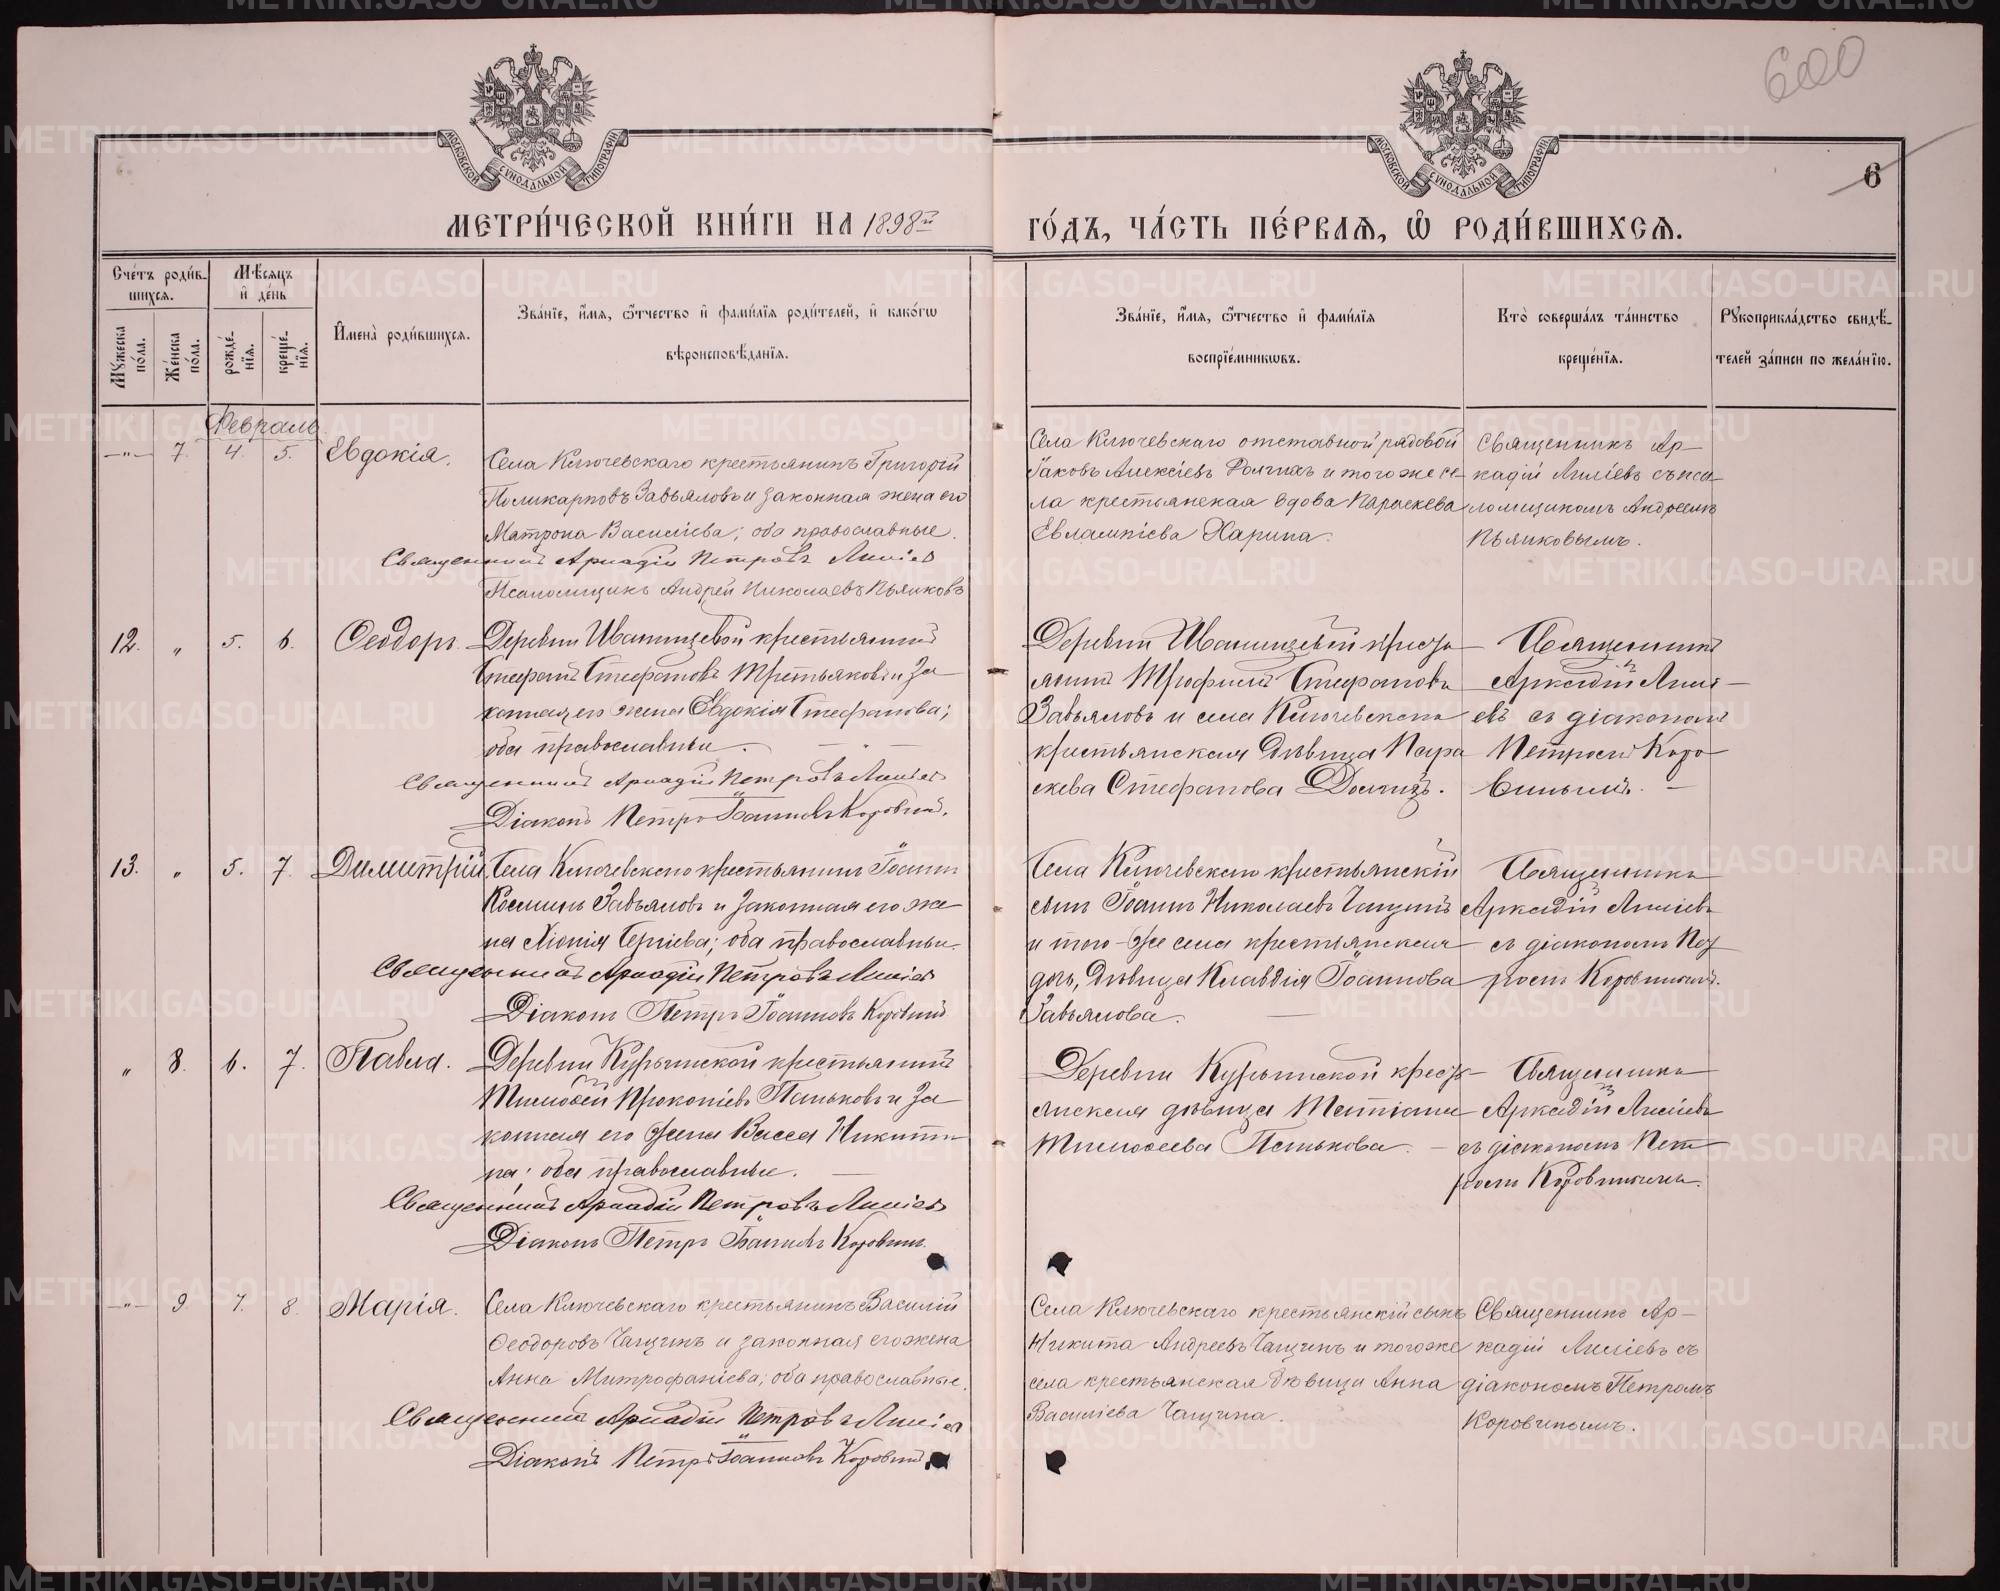 600
6
МОСКОВСКОЙ СѴНОДАЛЬНОЙ ТИПОГРАФІИ
МОСКОВСКОЙ СѴНОДАЛЬНОЙ ТИПОГРАФІИ
МЕТРИ́ЧЕСКОЙ КНИ́ГИ НА 1898й
ГО́ДЪ, ЧА́СТЬ ПЕ́РВАѦ, Ѽ РОДИ́ВШИХСѦ.
Сче́тъ роди́в-
шихсѧ.
Мѣ́сѧцъ
и҆ де́нь
Мꙋ́жеска
по́ла.
Же́нска
по́ла.
рожде́-
нїѧ.
креще́-
нїѧ.
И҆мена̀ роди́вшихсѧ.
Зва́нїе, и҆́мѧ, ѻ҆́тчество и҆ фами́лїѧ роди́телей, и҆ како́гѡ
вѣроисповѣ́данїѧ.
Зва́нїе, и҆́мѧ, ѻ҆́тчество и҆ фами́лїѧ
воспрїе́мникѡвъ.
Кто̀ соверша́лъ та́инство
креще́нїѧ.
Рꙋкоприкла́дство свидѣ́-
телей за́писи по жела́нїю.
Февраль
—"— 7. 4. 5. Евдокія.
Села Ключевскаго крестьянинъ Григорій
Поликарповъ Завьяловъ и законная жена его
Матрона Василіева; оба православные.
Священникъ Аркадій Петровъ Лиліевъ
Псаломщикъ Андрей Николаевъ Пьянковъ
Села Ключевскаго отставной рядовой
Іаковъ Алексіевъ Долгихъ и того же се-
ла крестьянская вдова Параскева
Евлампіева Харина.
Священникъ Ар-
кадій Лиліевъ съ пса-
ломщикомъ Андреемъ
Пьянковымъ.
12. " 5. 6. Ѳеодоръ.
Деревни Иванищевой крестьянинъ
Стефанъ Стефановъ Третьяковъ и за
конная его жена Евдокія Стефанова;
оба православные.
Священникъ Аркадій Петровъ Лиліевъ
Діаконъ Петръ Іоанновъ Коровинъ.
Деревни Иванищевой кресть
янинъ Трофимъ Стефановъ
Завьяловъ и села Ключевскаго
крестьянская дѣвица Пара
скева Стефанова Долгихъ.
Священникъ
Аркадій Лилі-
евъ съ діакономъ
Петромъ Коро
винымъ.
13. " 5. 7. Димитрій
Села Ключевскаго крестьянинъ Іоаннъ
Косминъ Завьяловъ и законная его же
на Хіонія Сергіева; оба православные.
Священникъ Аркадій Петровъ Лиліевъ
Діаконъ Петръ Іоанновъ Коровинъ
Села Ключевскаго крестьянскій
сынъ Іоаннъ Николаевъ Чащинъ
и того-же села крестьянская
дочь, дѣвица Клавдія Іоаннова
Завьялова.
Священникъ
Аркадій Лиліевъ
съ діакономъ Пет
ромъ Коровинымъ.
" 8. 6. 7. Павла.
Деревни Курьинской крестьянинъ
Тимоѳей Прокопіевъ Паньковъ и за
конная его жена Васса Никити
на; оба православные.
Священникъ Аркадій Петровъ Лиліевъ
Діаконъ Петръ Іоанновъ Коровинъ.
Деревни Курьинской кресть-
янская дѣвица Татіана
Тимоѳеева Панькова.
Священникъ
Аркадій Лиліевъ
съ діакономъ Пет
ромъ Коровинымъ.
—"— 9. 7. 8. Марія.
Села Ключевскаго крестьянинъ Василій
Ѳеодоровъ Чащинъ и законная его жена
Анна Митрофаніева; оба православные.
Священникъ Аркадій Петровъ Лиліевъ
Діаконъ Петръ Іоанновъ Коровинъ.
Села Ключевскаго крестьянскій сынъ
Никита Андреевъ Чащинъ и того же
села крестьянская дѣвица Анна
Василіева Чащина.
Священникъ Ар-
кадій Лиліевъ съ
діакономъ Петромъ
Коровинымъ.
METRIKI.GASO-URAL.RU